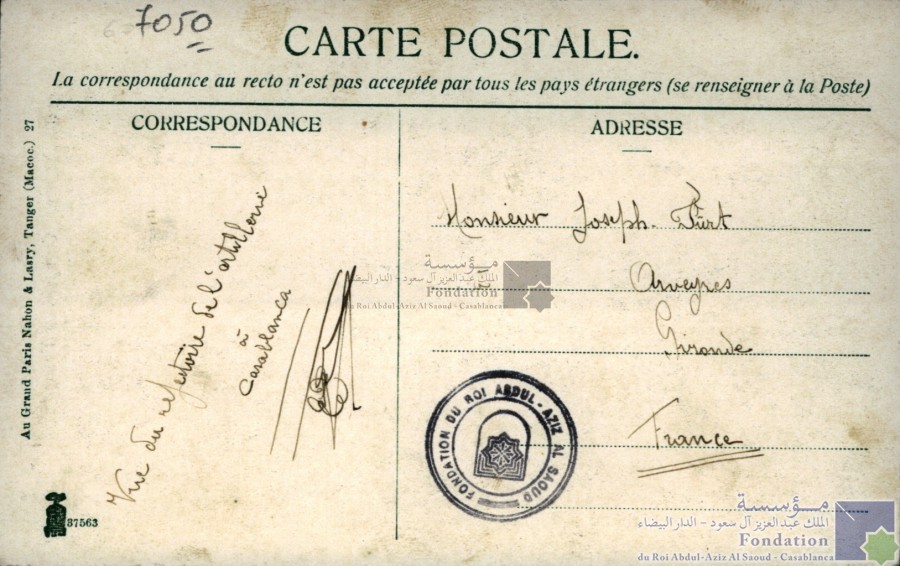 7050
CARTE POSTALE.
La correspondance au recto n'est pas acceptée par tous les pays étrangers (se renseigner à la Poste)
CORRESPONDANCE
Vue du refectoire de l'artillerie
à
Casablanca
ADRESSE
Monsieur Joseph
Arveyres
Gironde
France
Au Grand Paris Nahon & Lasry, Tanger (Maroc.) 27
37563
FONDATION DU ROI ABDUL-AZIZ AL SAOUD
مؤسسة
الملك عبد العزيز آل سعود - الدار البيضاء
Fondation
du Roi Abdul-Aziz Al Saoud - Casablanca
مؤسسة
الملك عبد العزيز آل سعود - الدار البيضاء
Fondation
du Roi Abdul-Aziz Al Saoud - Casablanca